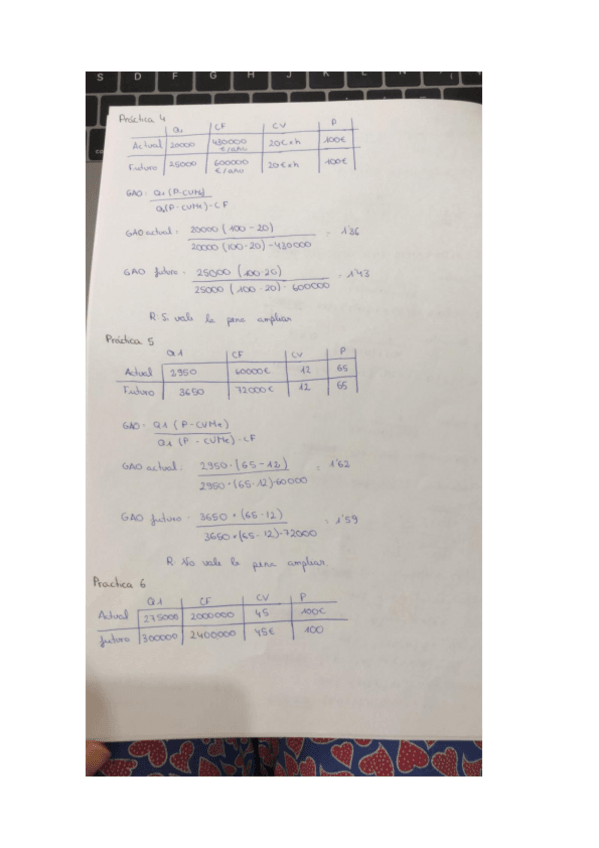 S D F G H J K L
Práctica 4
Q1 CF CV P
Actual 20000 430000 €/año 20€xh 100€
Futuro 25000 600000 €/año 20€xh 100€
GAO: Q1 (P-CVMe)
Q1(P-CVMe)-CF
GAO actual: 20000 (100-20) = 1'36
20000 (100-20)-430000
GAO futuro = 25000 (100-20) = 1'43
25000 (100-20)-600000
R: Si vale la pena ampliar
Práctica 5
Q1 CF CV P
Actual 2950 60000€ 12 65
Futuro 3650 72000€ 12 65
GAO: Q1 (P-CVMe)
Q1 (P-CVMe)-CF
GAO actual: 2950·(65-12) = 1'62
2950·(65-12)-60000
GAO futuro = 3650·(65-12) = 1'59
3650·(65-12)-72000
R: No vale la pena ampliar.
Practica 6
Q1 CF CV P
Actual 275000 2000000 45 100€
futuro 300000 2400000 45€ 100